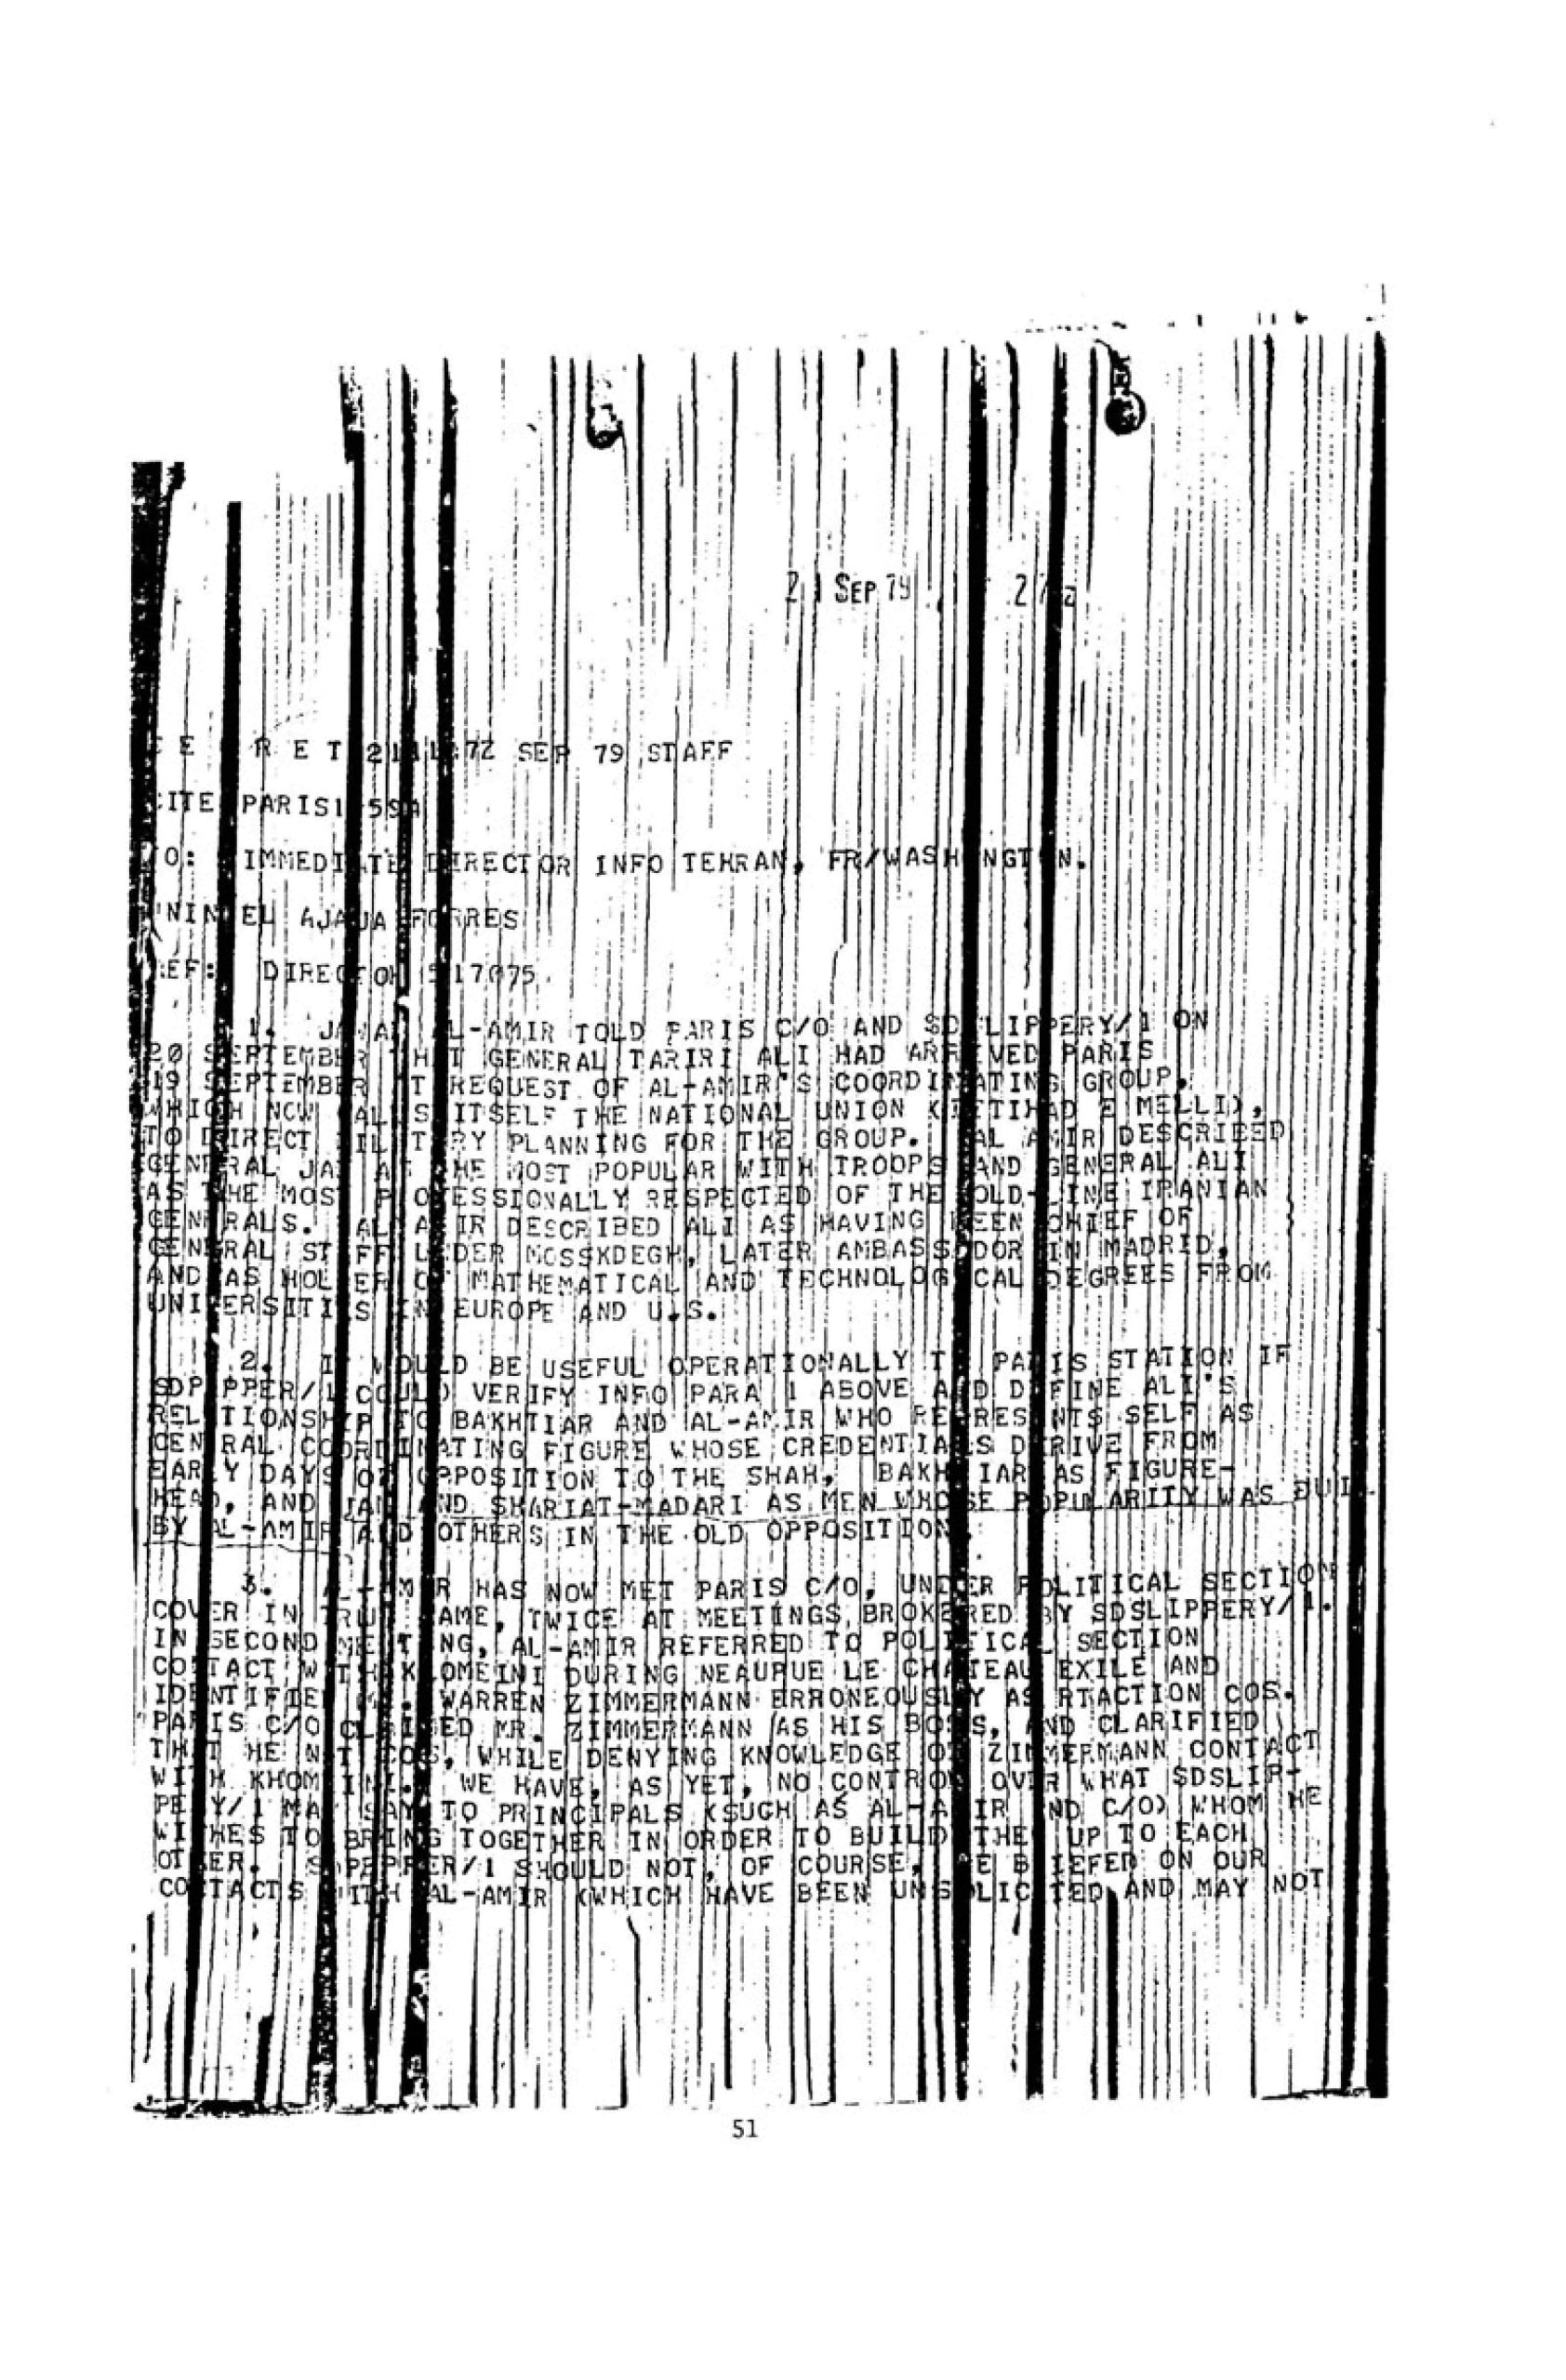 21 SEP 79
R E T SEP 79 STAFF
CITE PARIS
TO: IMMEDIATE DIRECTOR INFO TEHRAN, FR/WASHINGTON.
REF: DIRECTOR 517075
1. AL-AMIR TOLD PARIS C/O AND SDSLIPPERY/1 ON
20 SEPTEMBER THAT GENERAL TARIRI ALI HAD ARRIVED PARIS
19 SEPTEMBER AT REQUEST OF AL-AMIR'S COORDINATING GROUP,
WHICH NOW CALLS ITSELF THE NATIONAL UNION (ETTIHAD E MELLI),
TO DIRECT MILITARY PLANNING FOR THE GROUP. AL AMIR DESCRIBED
GENERAL JAM AS THE MOST POPULAR WITH TROOPS AND GENERAL ALI
AS THE MOST PROFESSIONALLY RESPECTED OF THE OLD-LINE IRANIAN
GENERALS. AL-AMIR DESCRIBED ALI AS HAVING BEEN CHIEF OF
GENERAL STAFF UNDER MOSSKDEGH, LATER AMBASSADOR IN MADRID,
AND AS HOLDER OF MATHEMATICAL AND TECHNOLOGICAL DEGREES FROM
UNIVERSITIES IN EUROPE AND U.S.
2. IT WOULD BE USEFUL OPERATIONALLY TO PARIS STATION IF
SDPEPPER/1 COULD VERIFY INFO PARA 1 ABOVE AND DEFINE ALI'S
RELATIONSHIP TO BAKHTIAR AND AL-AMIR WHO REPRESENTS SELF AS
CENTRAL COORDINATING FIGURE WHOSE CREDENTIALS DERIVE FROM
EARLY DAYS OF OPPOSITION TO THE SHAH, BAKHTIAR AS FIGURE-
HEAD, AND JAM AND SHARIAT-MADARI AS MEN WHOSE POPULARITY WAS BUIL
BY AL-AMIR AND OTHERS IN THE OLD OPPOSITION.
3. AL-AMIR HAS NOW MET PARIS C/O, UNDER POLITICAL SECTION
COVER IN TRUE NAME, TWICE AT MEETINGS BROKERED BY SDSLIPPERY/1.
IN SECOND MEETING, AL-AMIR REFERRED TO POLITICAL SECTION
CONTACT WITH KHOMEINI DURING NEAUPUE LE CHATEAU EXILE AND
IDENTIFIED MR. WARREN ZIMMERMANN ERRONEOUSLY AS RTACTION COS.
PARIS C/O CLAIMED MR. ZIMMERMANN AS HIS BOSS, AND CLARIFIED
THAT HE NOT COS, WHILE DENYING KNOWLEDGE OF ZIMMERMANN CONTACT
WITH KHOMEINI. WE HAVE, AS YET, NO CONTROL OVER WHAT SDSLIP-
PERY/1 MAY SAY TO PRINCIPALS (SUCH AS AL-AMIR AND C/O) WHOM HE
WISHES TO BRING TOGETHER IN ORDER TO BUILD THEM UP TO EACH
OTHER. SDPEPPER/1 SHOULD NOT, OF COURSE, BE BRIEFED ON OUR
CONTACTS WITH AL-AMIR (WHICH HAVE BEEN UNSOLICITED AND MAY NOT
51